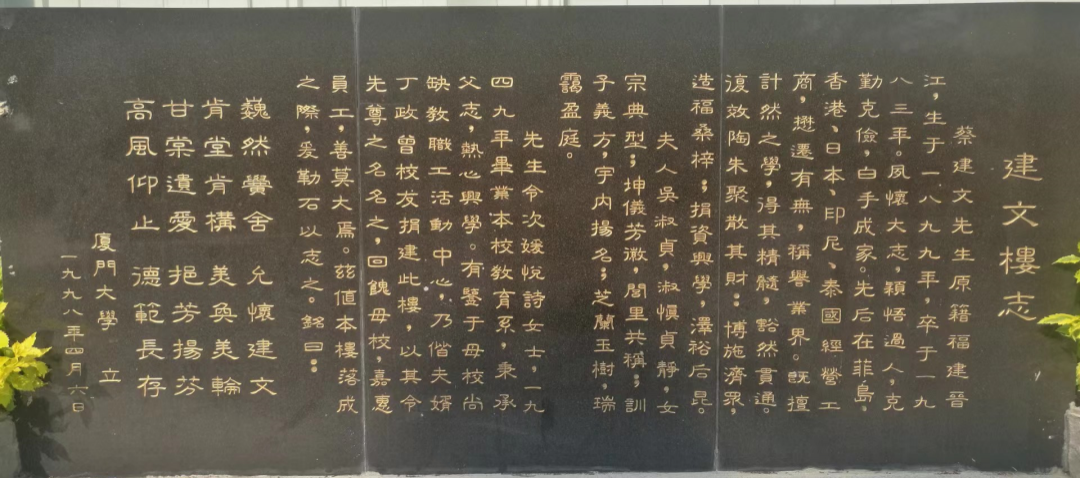 建文樓志
蔡建文先生原籍福建晉
江,生于一八九九年,卒于一九
八三年。夙懷大志,穎悟過人,克
勤克儉,白手成家。先后在菲島、
香港、日本、印尼、泰國經營工
商,懋遷有無,稱譽業界。既擅
計然之學,得其精髓,豁然貫通。
復效陶朱聚散其財:博施濟眾,
造福桑梓;捐資興學,澤裕后昆。
夫人吳淑貞,淑慎貞靜,女
宗典型;坤儀芳徽,閭里共稱;訓
子義方,宇内揚名;芝蘭玉樹,瑞
靄盈庭。
先生令次媛悅詩女士,一九
四九年畢業本校教育系,秉承
父志,熱心興學。有鑒于母校尚
缺教職工活動中心,乃偕夫婿
丁政曾校友捐建此樓,以其令
先尊之名名之,回餽母校,嘉惠
員工,善莫大焉。兹值本樓落成
之際,爰勒石以志之。銘曰:
巍然黌舍 允懷建文
肯堂肯構 美奐美輪
甘棠遺愛 挹芳揚芬
高風仰止 德範長存
廈門大學 立
一九九八年四月六日